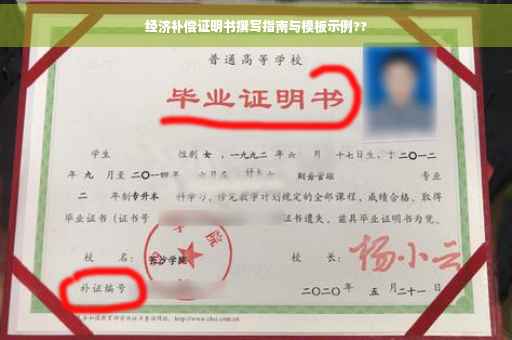 经济补偿证明书撰写指南与模板示例??
普通高等学校
毕业证明书
学生 性别 女，一九九二 年 六 月 十七日生，于 二〇一二
年 九 月至 二〇一四 年 六月在 财务管理 专业
二 年制 专升本 科学习，修完教学计划规定的全部课程，成绩合格，取得
毕业证书（证书号 证书遗失，兹具毕业证明书为凭。
校 名： 长沙学院 校 长： 杨小云
补证编号 二〇二〇年 五 月 二十一日
http://www.chsi.com.cn